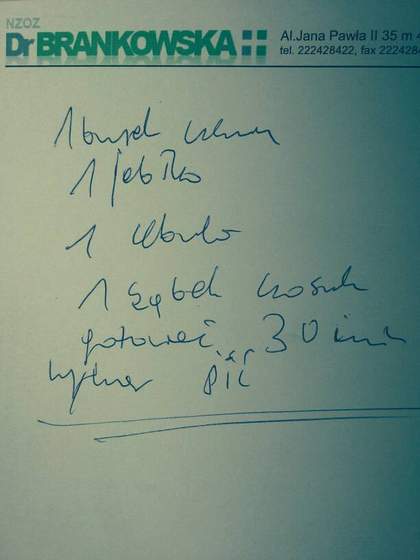 NZOZ
Dr BRANKOWSKA
Al.Jana Pawła II 35 m
tel. 222428422, fax 222428
1 burak
1 jabłko
1 cebula
1 ząbek czosnk
gotować 30 min
wywar pić